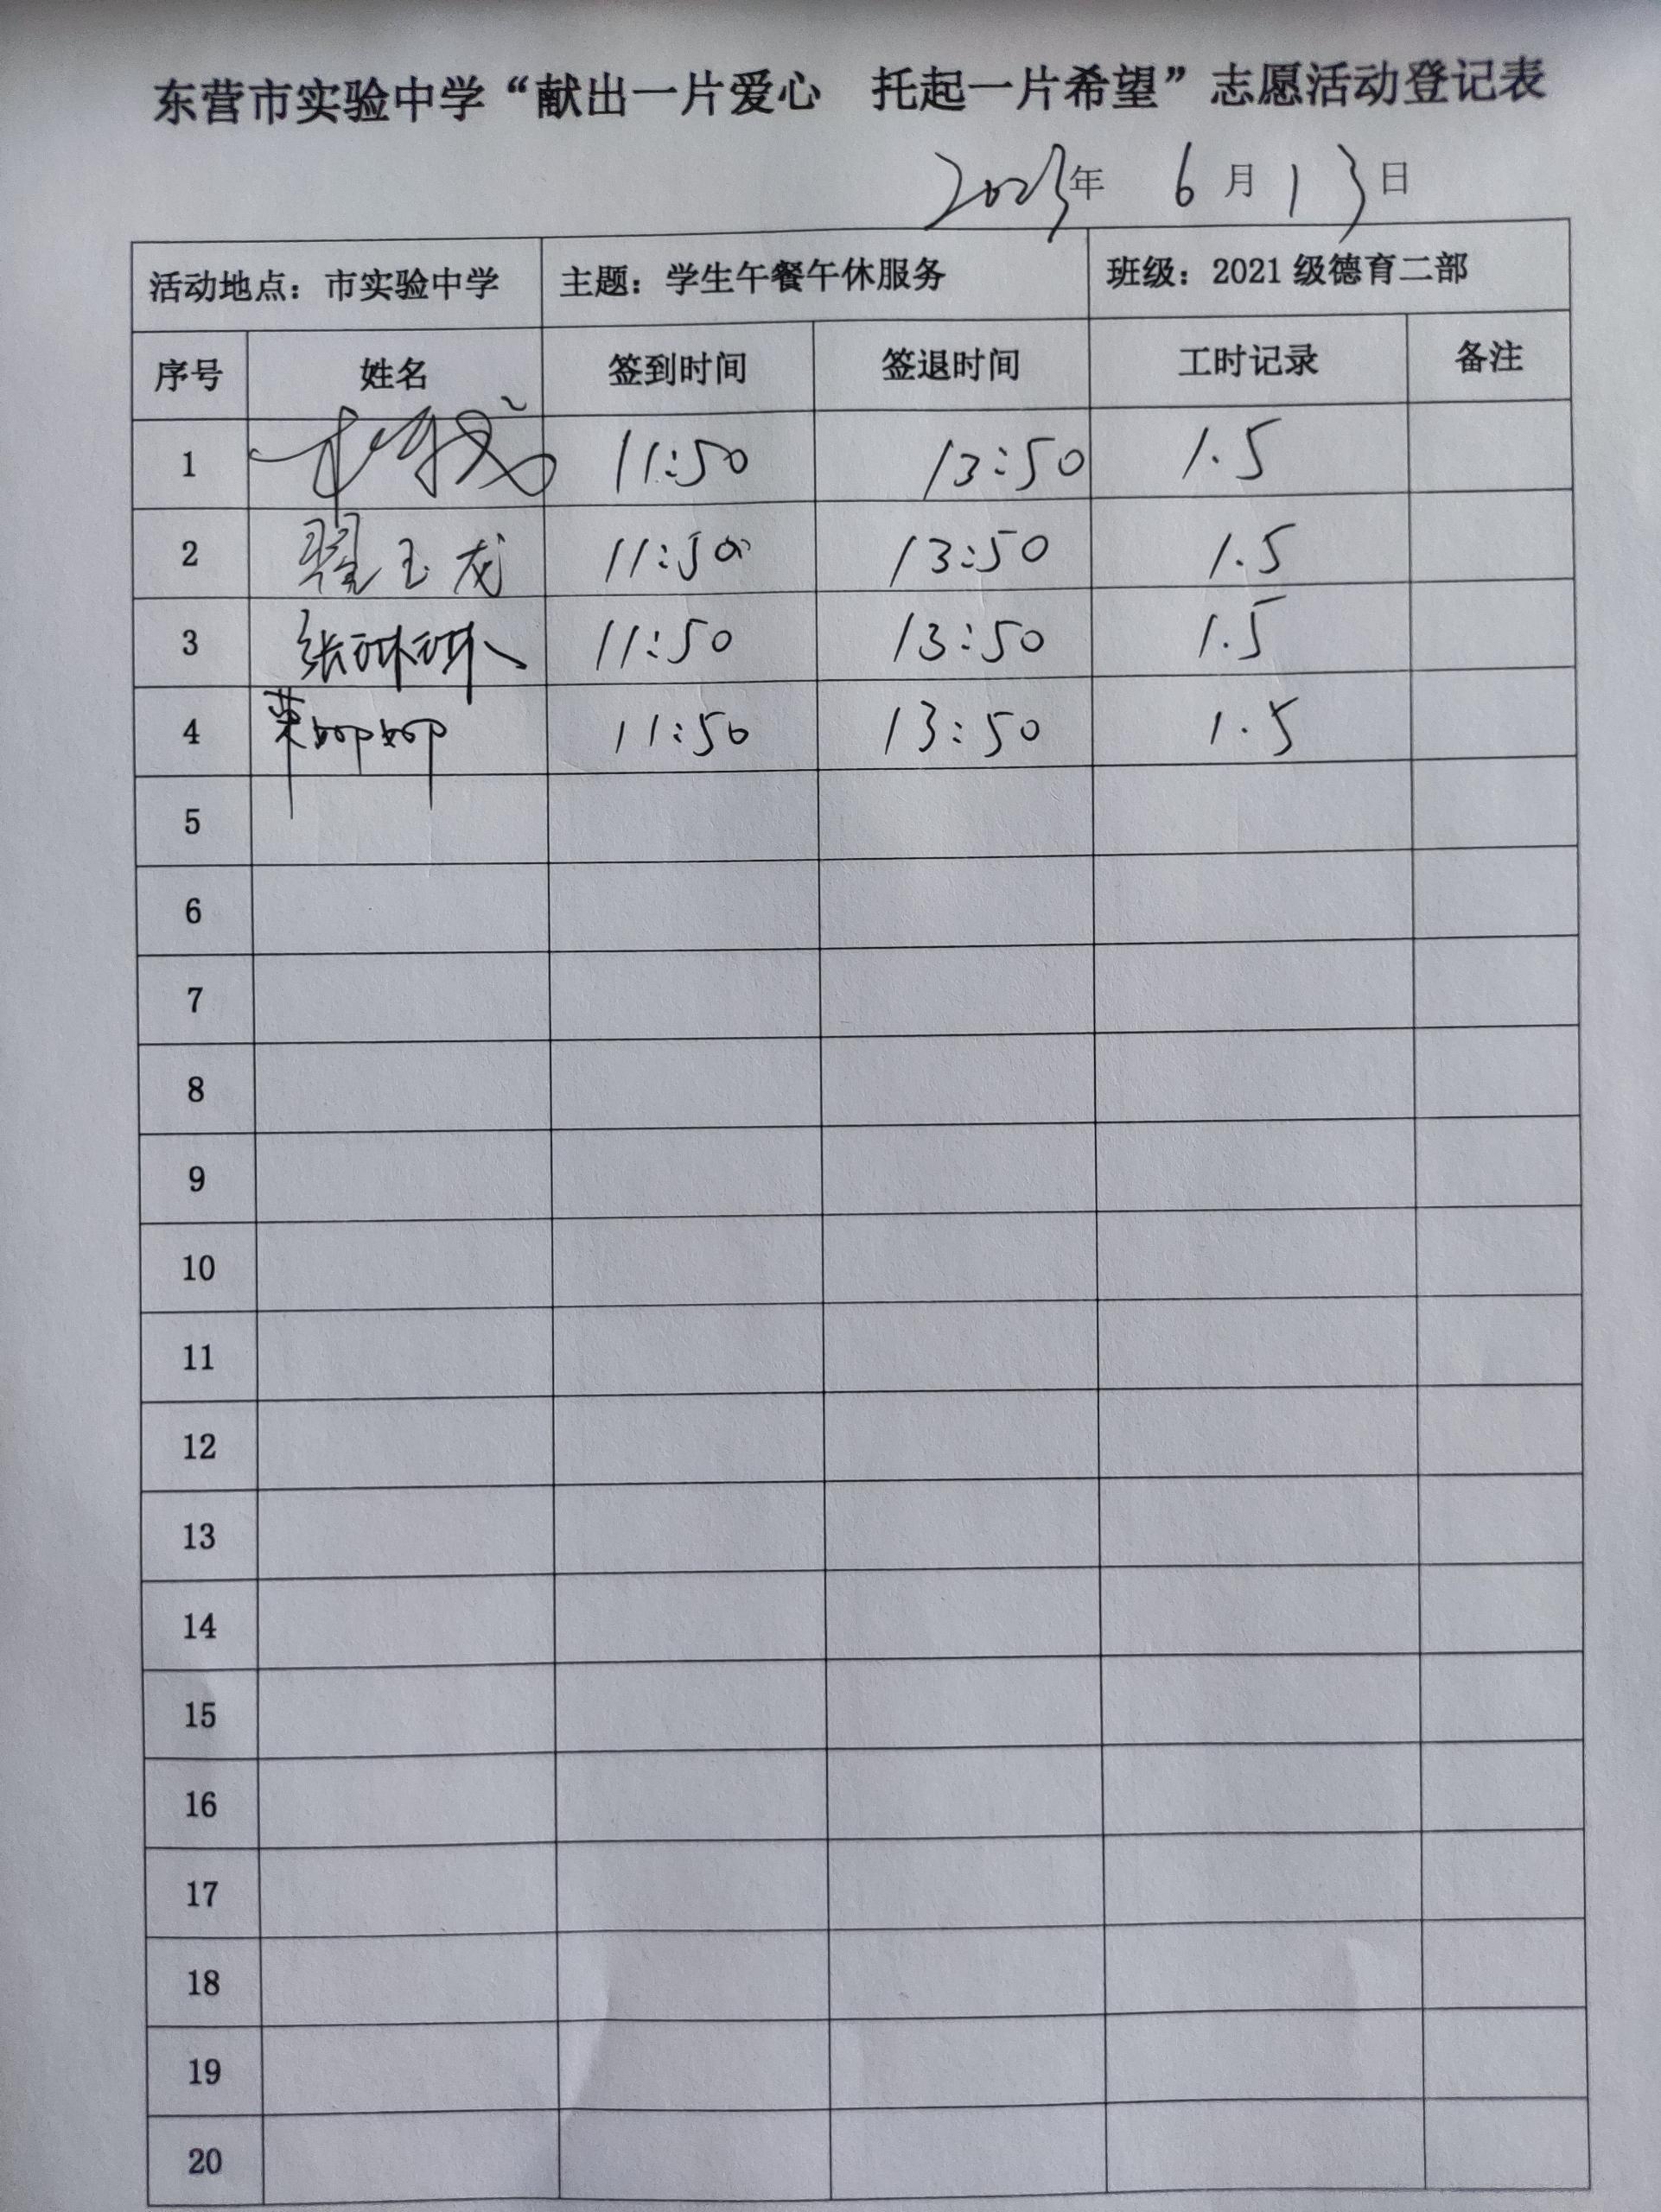 东营市实验中学“献出一片爱心 托起一片希望”志愿活动登记表
2023年 6月13日
活动地点：市实验中学 主题：学生午餐午休服务 班级：2021级德育二部
序号 姓名 签到时间 签退时间 工时记录 备注
1 11:50 13:50 1.5
2 翟玉龙 11:50 13:50 1.5
3 张琳琳 11:50 13:50 1.5
4 11:50 13:50 1.5
5
6
7
8
9
10
11
12
13
14
15
16
17
18
19
20